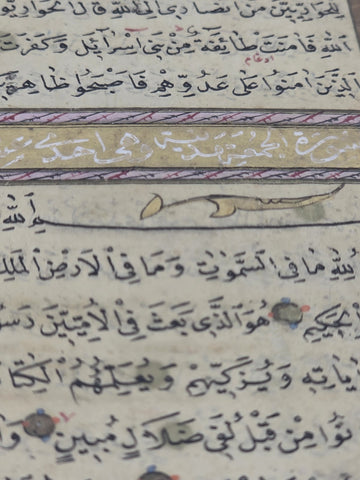 لِلْحَوَارِيِّينَ مَنْ اَنْصَارِي اِلَى اللّٰهِ قَالَ الْحَوَارِيُّونَ
اللّٰهِ فَاٰمَنَتْ طَائِفَةٌ مِنْ بَنِي اِسْرَائِيلَ وَكَفَرَتْ
ادغام
الَّذِينَ اٰمَنُوا عَلٰى عَدُوِّهِمْ فَاَصْبَحُوا ظَاهِرِينَ
سورة الجمعة مدنية وهي احدى
اللّٰهِ
لِلّٰهِ مَا فِي السَّمٰوَاتِ وَمَا فِي الْاَرْضِ الْمَلِكِ
الْحَكِيمِ هُوَ الَّذِي بَعَثَ فِي الْاُمِّيِّينَ رَسُو
اٰيَاتِهِ وَيُزَكِّيهِمْ وَيُعَلِّمُهُمُ الْكِتَا
نُوا مِنْ قَبْلُ لَفِي ضَلَالٍ مُبِينٍ